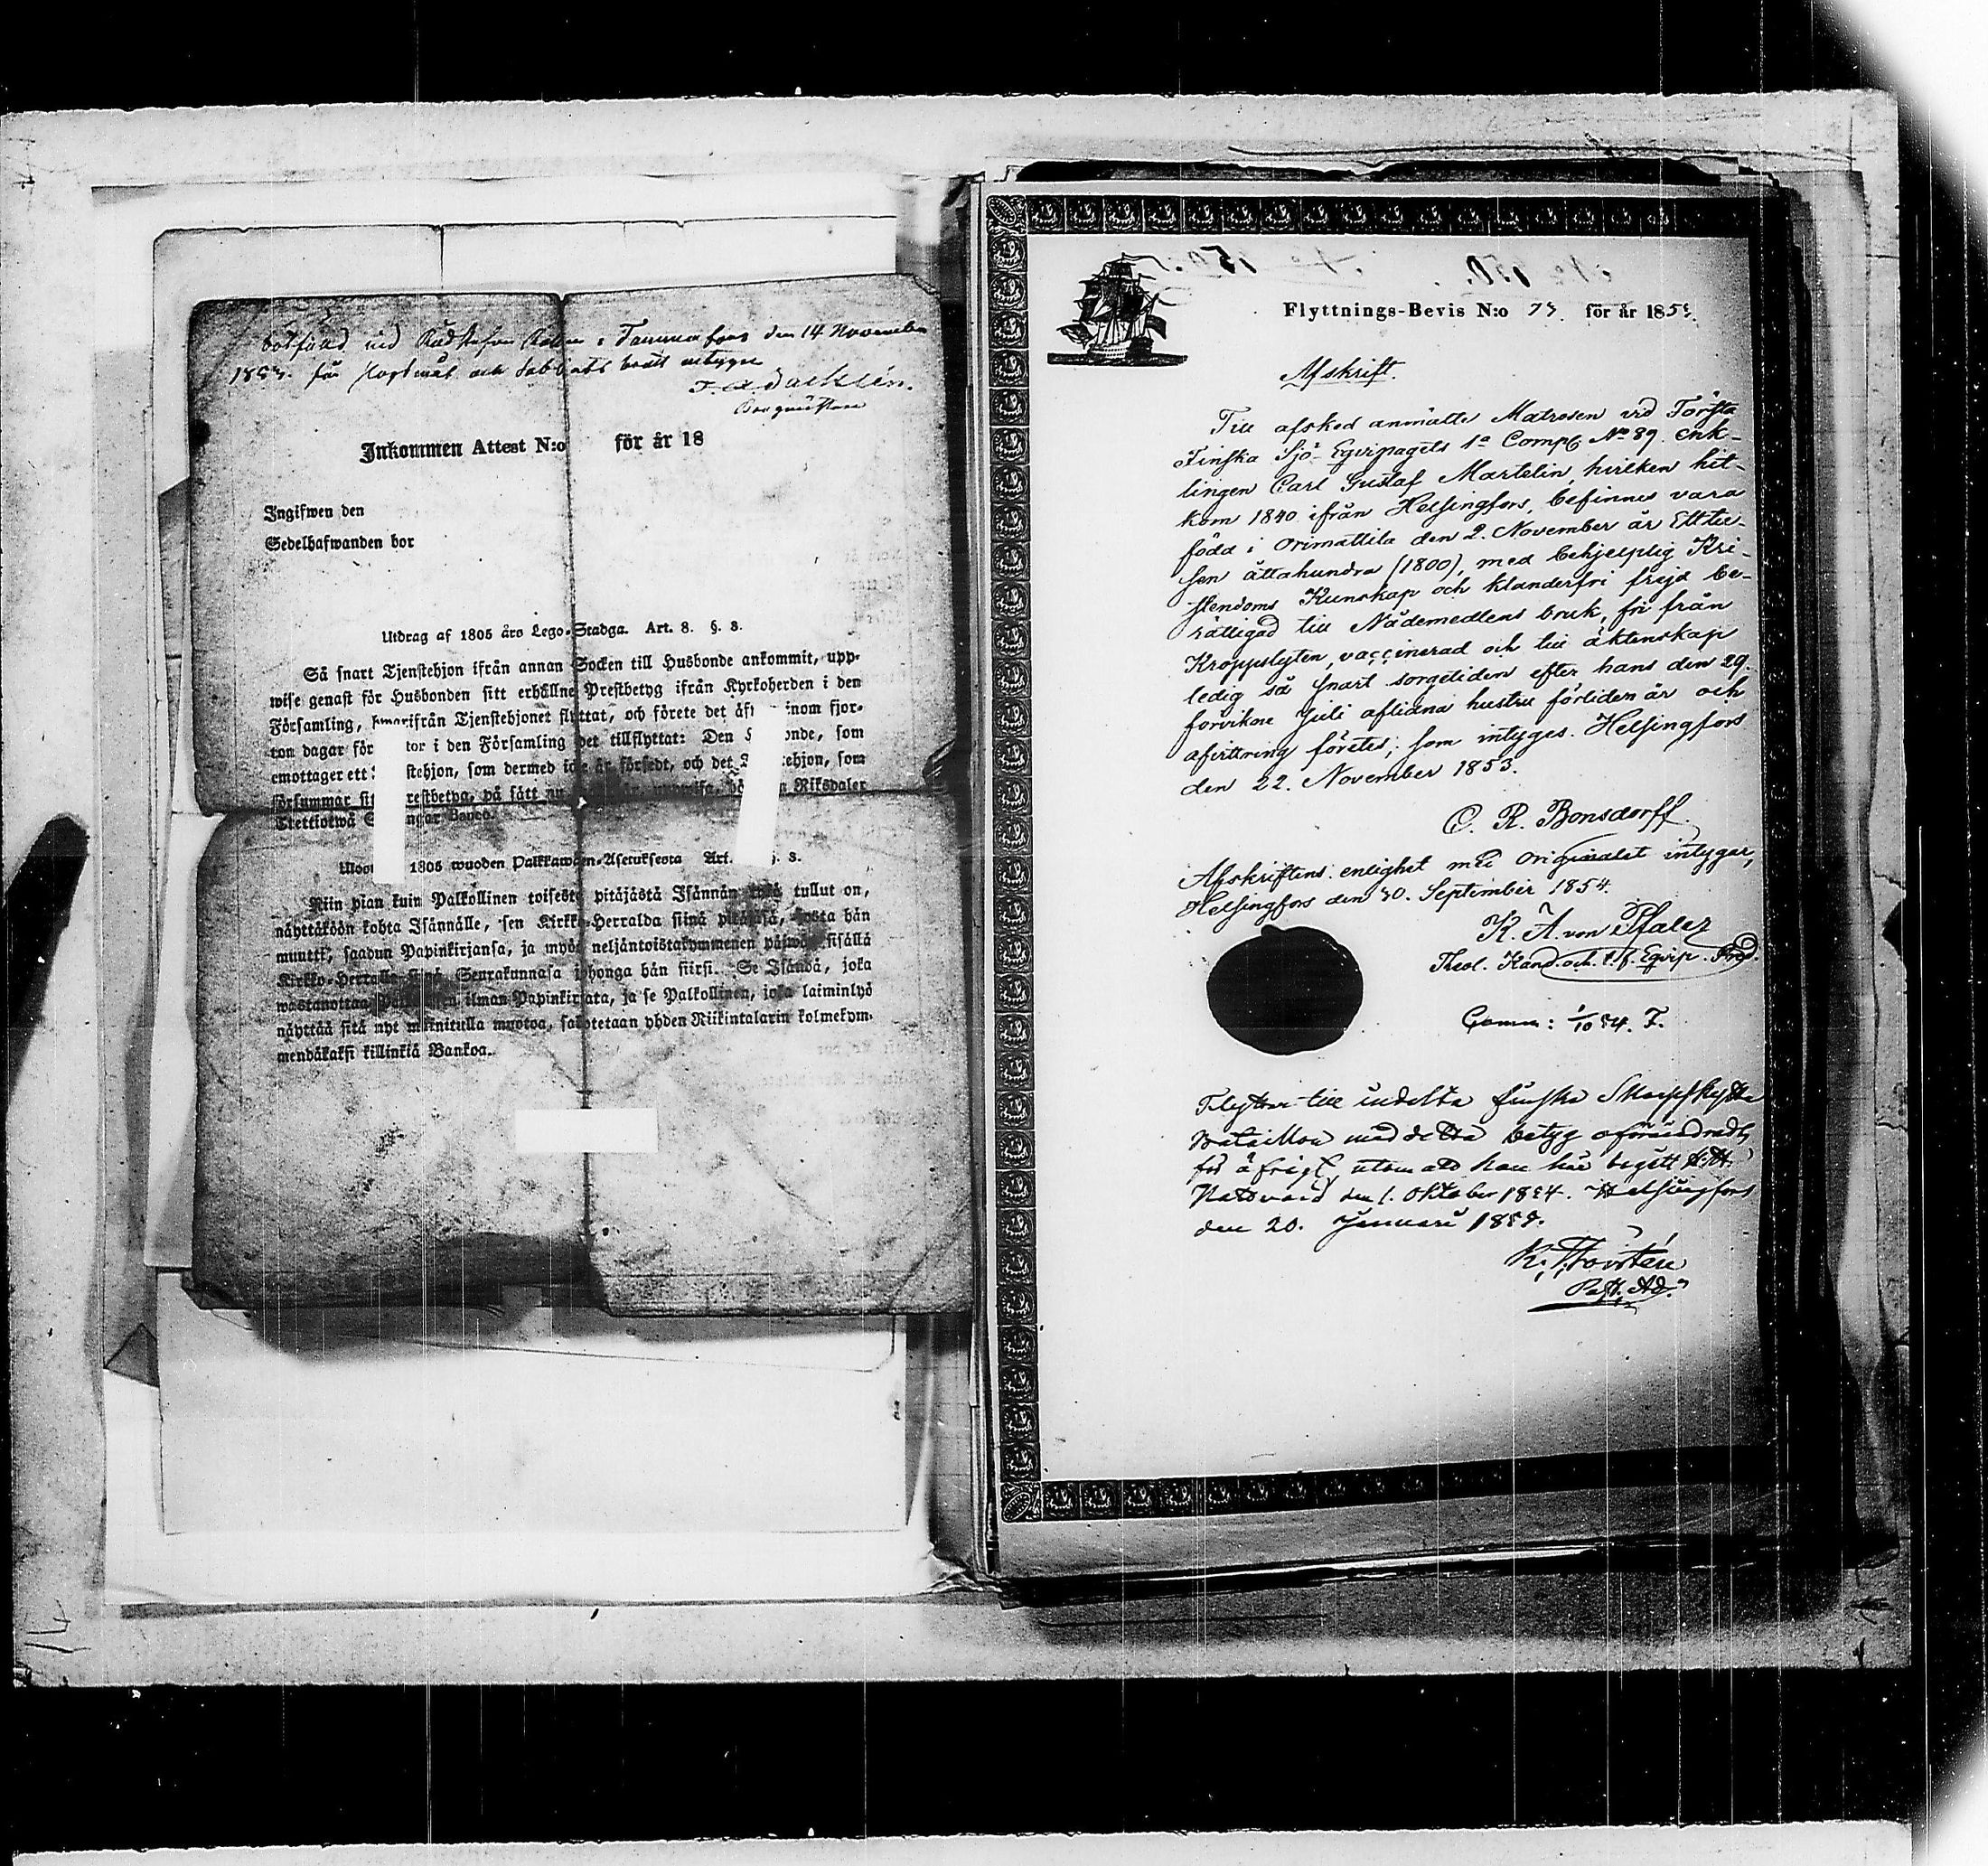 den 14 November
för och Sabbats brott
Inkommen Attest N:o för år 18
Ingifwen den
Sedelhafwanden bor
Utdrag af 1805 års Lego-Stadga. Art. 8. §. 8.
Så snart Tjenstehjon ifrån annan Socken till Husbonde ankommit, upp-
wise genast för Husbonden sitt erhållne Prestbetyg ifrån Kyrkoherden i den
Församling, hwarifrån Tjenstehjonet flyttat, och förete det inom fjor-
ton dagar för i den Församling det tillflyttat: Den som
emottager ett som dermed icke är försedt, och det som
försummar på sätt Riksdaler
Trettiotwå Banco.
1805 wuoden Palkkawäen-Asetuksesta Art. 8.
Niin pian kuin Palkollinen toisesta pitäjästä Isännän tykö tullut on,
näyttäköön kohta Isännälle, sen Kirkko-Herralda siinä pitäjäsä, josta hän
muutti, saadun Papinkirjansa, ja myös neljäntoistakymmenen päiwän sisällä
Kirkko-Herralle siinä Seurakunnasa johonga hän siirsi. Se Isändä, joka
wastanottaa Palkollisen ilman Papinkirjata, ja se Palkollinen, joka laiminlyö
näyttää sitä nyt mainitulla muotoa, sakotetaan yhden Riikintalarin kolmekym-
mendäkaksi killinkiä Bankoa.
Flyttnings-Bevis N:o för år 185
Afskrift.
Till afsked anmälte Matrosen vid Första
Finska Sjö-Eqvipagets 1a Comp. No 89. enk-
lingen Carl Gustaf Martelin, hvilken hit-
kom 1840 ifrån Helsingfors, befinnes vara
född i Orimattila den 2. November år Ettu-
sen åttahundra (1800), med behjelplig Kri-
stendoms Kunskap och klanderfri frejd be-
rättigad till Nådemedlens bruk, fri från
Kroppslyten, vaccinerad och till äktenskap
ledig så snart sorgetiden efter hans den 29.
förvikne Juli aflidna hustru förliden är och
afvittring företes; som intygas. Helsingfors
den 22. November 1853.
C. R. Bonsdorff.
Afskriftens enlighet med Originalet intygar,
Helsingfors den 30. September 1854.
K. A. von Pfaler
Theol. Kand. och t. f. Eqvip. Pred.
1/10 54. F.
Flyttar till indelta finska Skarpskytte
Bataillon med detta betyg oförändradt,
för öfrigt, utom att han här begått H. H.
Nattvard den 1. Oktober 1854. Helsingfors
den 20. Januari